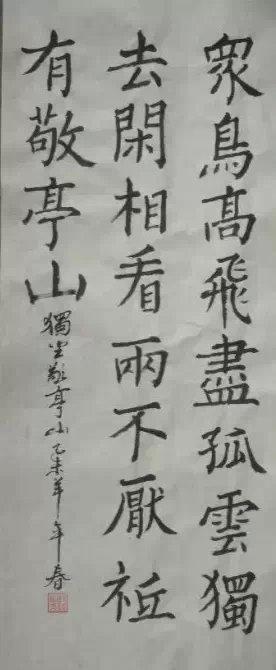 衆鳥高飛盡孤雲獨
去閑相看兩不厭祗
有敬亭山
獨坐敬亭山乙未羊年春